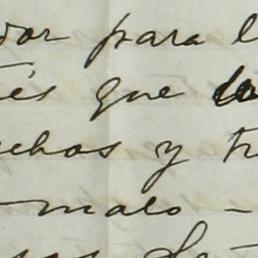 dor para l
és que lo
uchos y tr
malo -